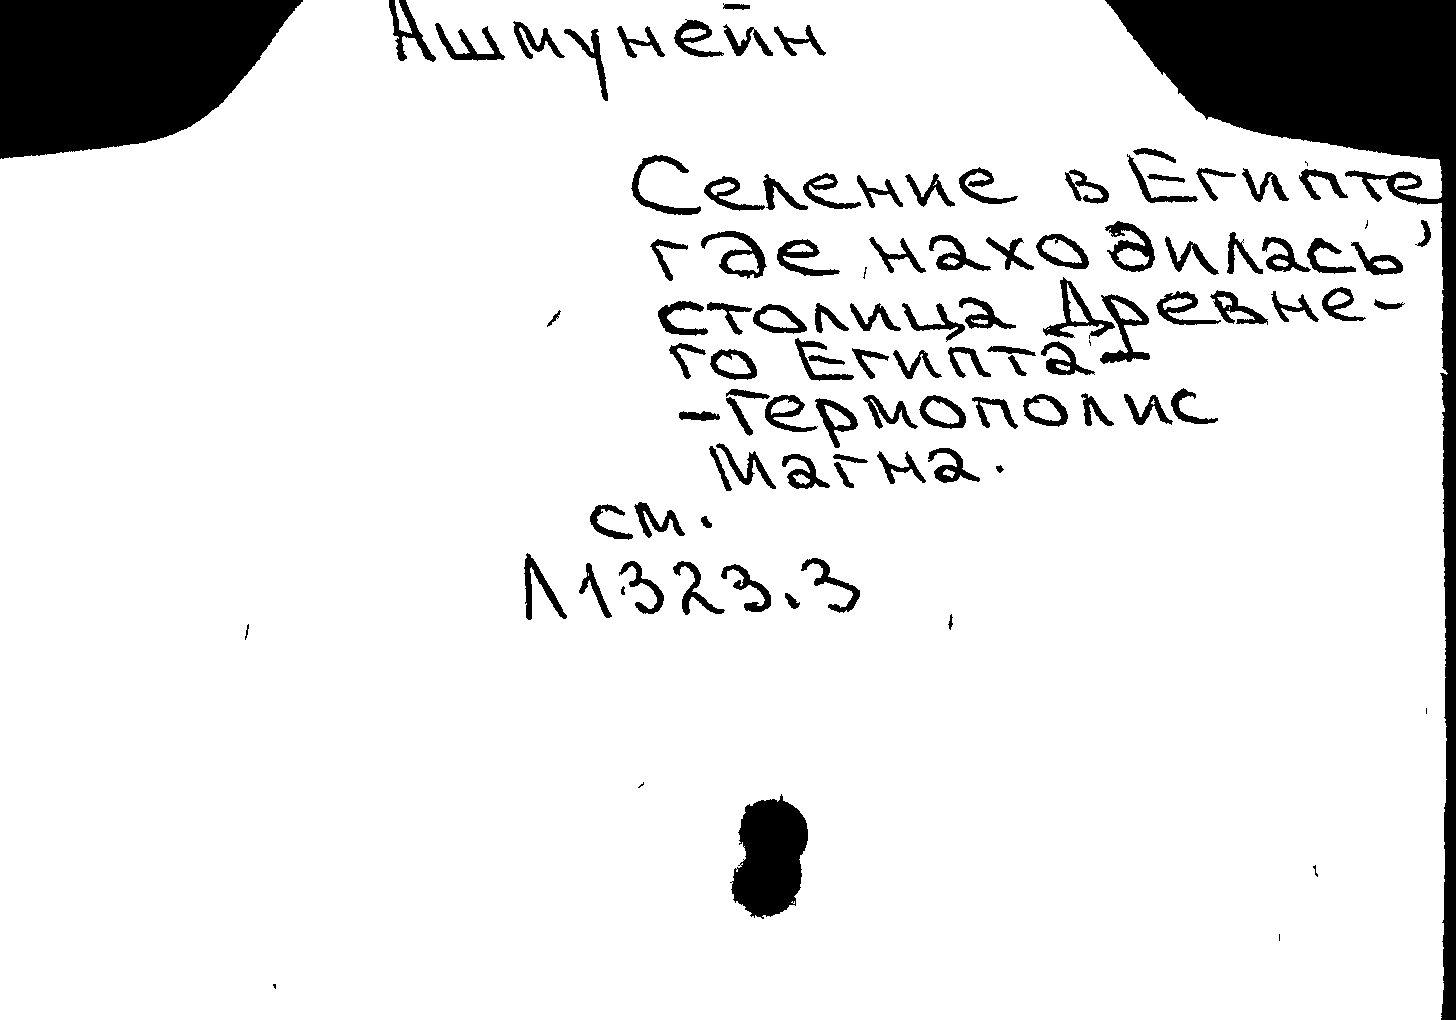 Ашмунейн
Селение в Египте,
где находилась
столица Древне-
го Египта-
-Гермополис
Магна.
см.
Л1323.3